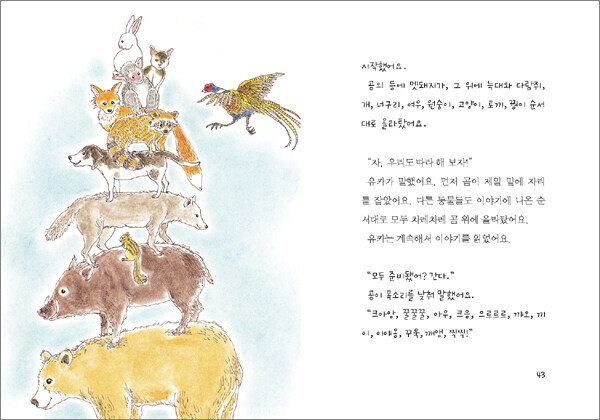 시작했어요.
곰의 등에 멧돼지가, 그 위에 늑대와 다람쥐,
개, 너구리, 여우, 원숭이, 고양이, 토끼, 꿩이 순서
대로 올라탔어요.
"자, 우리도 따라 해 보자!"
유카가 말했어요. 먼저 곰이 제일 밑에 자리
를 잡았어요. 다른 동물들도 이야기에 나온 순
서대로 모두 차례차례 곰 위에 올라탔어요.
유카는 계속해서 이야기를 읽었어요.
"모두 준비됐어? 간다."
곰이 목소리를 낮춰 말했어요.
"크아앙, 꿀꿀꿀, 아우, 크응, 으르르르, 캬오, 끼
이, 이야옹, 꾸욱, 깨앵, 찍찍!"
43